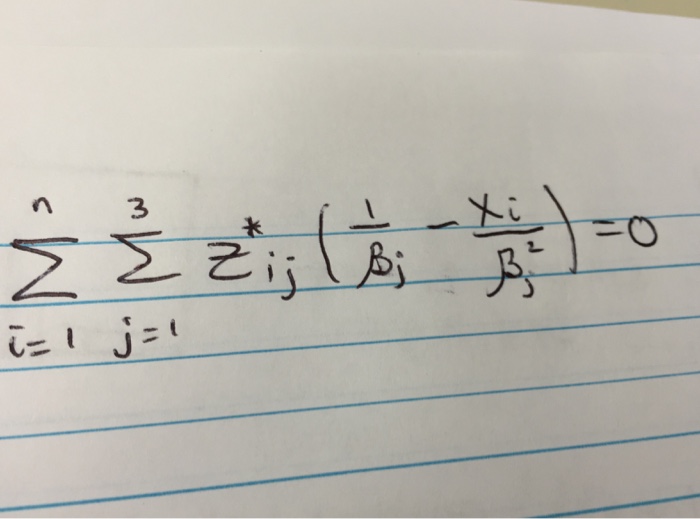 $\sum_{i=1}^{n} \sum_{j=1}^{3} z^{*}_{ij} \left( \frac{1}{\beta_j} - \frac{x_i}{\beta_j^2} \right) = 0$